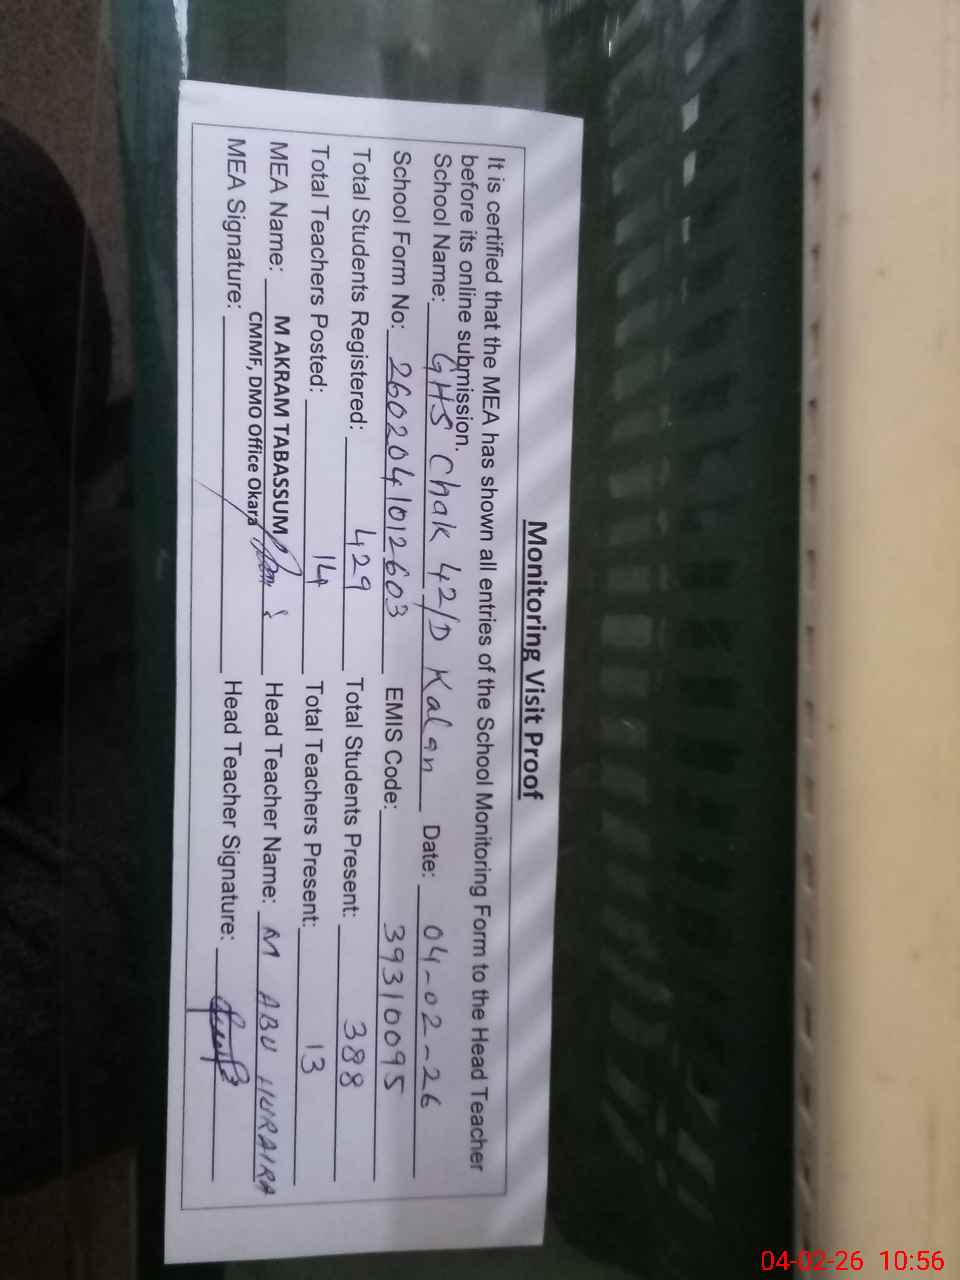 Monitoring Visit Proof
It is certified that the MEA has shown all entries of the School Monitoring Form to the Head Teacher
before its online submission.
School Name: GHS Chak 42/D Kalan Date: 04-02-26
School Form No: 2602041012603 EMIS Code: 39310095
Total Students Registered: 429 Total Students Present: 388
Total Teachers Posted: 14 Total Teachers Present: 13
MEA Name: M AKRAM TABASSUM Head Teacher Name: M ABU HURAIRA
CMMF, DMO Office Okara
MEA Signature: Head Teacher Signature:
04-02-26 10:56